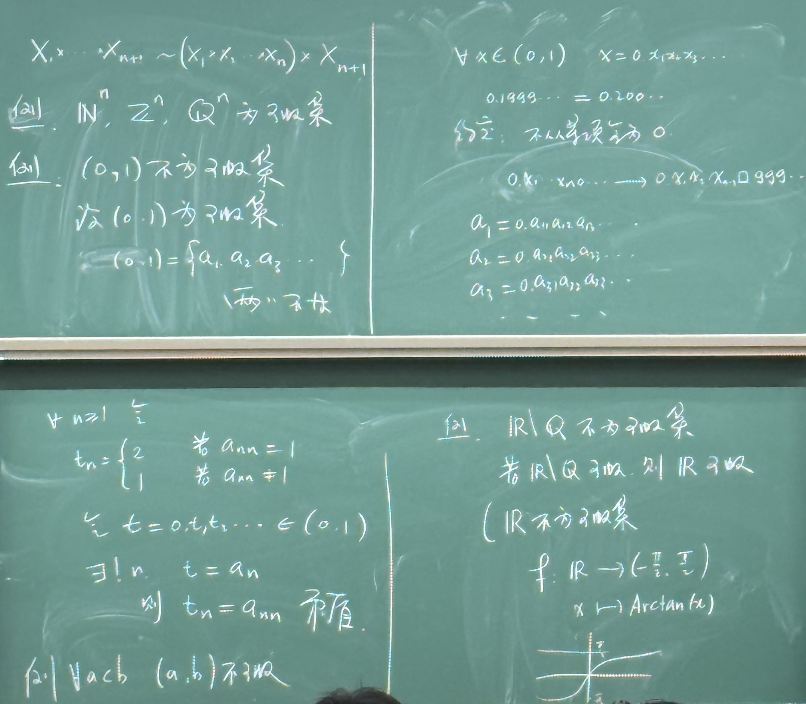 X₁×⋯×Xₙ₊₁ ~ (X₁×X₂⋯×Xₙ)×Xₙ₊₁
例. ℕⁿ, ℤⁿ, ℚⁿ 为可数集
例. (0,1) 不为可数集
设 (0,1) 为可数集
(0,1) = {a₁, a₂, a₃ ⋯ }
两两不等
∀ x∈(0,1)  x=0.x₁x₂x₃⋯
0.1999⋯ = 0.200⋯
约定: 不从某项全为 0.
0.x₁⋯xₙ0⋯ → 0.x₁x₂ xₙ₋₁□999⋯
a₁ = 0.a₁₁a₁₂a₁₃⋯
a₂ = 0.a₂₁a₂₂a₂₃⋯
a₃ = 0.a₃₁a₃₂a₃₃⋯
⋯
∀ n≥1 令
tₙ = { 2 若 aₙₙ = 1
1 若 aₙₙ ≠ 1
令 t = 0.t₁t₂⋯ ∈ (0,1)
∃! n. t = aₙ
则 tₙ = aₙₙ 矛盾.
例 ∀a<b (a,b) 不可数
例. ℝ\ℚ 不为可数集
若 ℝ\ℚ 可数. 则 ℝ 可数
(ℝ 不为可数集
f: ℝ → (-π/2, π/2)
x ↦ Arctan(x)